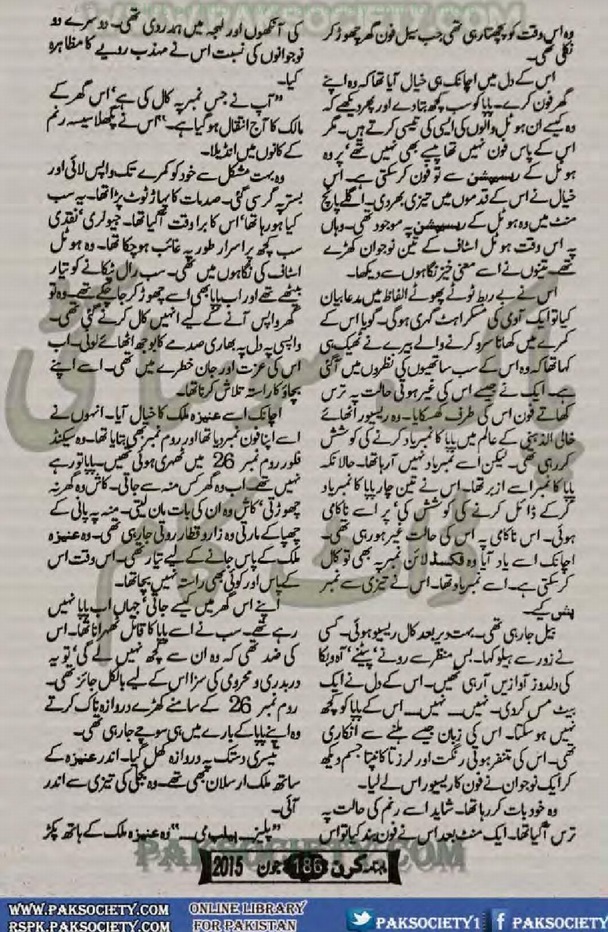 WWW.PAKSOCIETY.COM
وہ اس وقت کو پچھتا رہی تھی جب سیل فون گھر چھوڑ کر
نکلی تھی۔
اس کے دل میں اچانک ہی خیال آیا تھا کہ وہ اپنے
گھر فون کرے۔ پاپا کو سب کچھ بتا دے اور پھر دیکھے کہ
وہ کیسے ان ہوٹل والوں کی ایسی کی تیسی کرتے ہیں۔ مگر
اس کے پاس فون نہیں تھا پیسے بھی نہیں تھے‘ پر وہ
ہوٹل کے ریسیپشن سے تو فون کر سکتی ہے۔ اس
خیال نے اس کے قدموں میں تیزی بھر دی۔ اگلے پانچ
منٹ میں وہ ہوٹل کے ریسیپشن پہ موجود تھی۔ وہاں
پہ اس وقت ہوٹل اسٹاف کے تین نوجوان کھڑے
تھے۔ تینوں نے اسے معنی خیز نگاہوں سے دیکھا۔
اس نے بے ربط ٹوٹے پھوٹے الفاظ میں مدعا بیان
کیا تو ایک آدمی کی مسکراہٹ گہری ہوگی۔ گویا اس کے
کمرے میں کھانا سرو کرنے والے بیرے نے ٹھیک ہی
کہا تھا کہ وہ اس کے سب ساتھیوں کی نظروں میں آگئی
ہے۔ ایک نے جیسے اس کی غیر ہوتی حالت پہ ترس
کھاتے فون اس کی طرف کھسکایا۔ وہ ریسیور اٹھائے
خالی الذہنی کے عالم میں پاپا کا نمبر یاد کرنے کی کوشش
کر رہی تھی۔ لیکن اسے نمبر یاد نہیں آ رہا تھا۔ حالانکہ
پاپا کا نمبر اسے ازبر تھا۔ اس نے تین چار پاپا کا نمبر یاد
کر کے ڈائل کرنے کی کوشش کی‘ پر اسے ناکامی
ہوئی۔ اس ناکامی پہ اس کی حالت غیر ہو رہی تھی۔
اچانک اسے یاد آیا وہ فکسڈ لائن نمبر پہ بھی تو کال
کر سکتی ہے۔ اسے نمبر یاد تھا۔ اس نے تیزی سے نمبر
پش کیے۔
بیل جا رہی تھی۔ بہت دیر بعد کال ریسیو ہوئی۔ کسی
نے زور سے ہیلو کہا۔ پس منظر سے رونے‘ پیٹنے‘ آہ و بکا
کی دلدوز آوازیں آ رہی تھیں۔ اس کے دل نے ایک
بیٹ مس کر دی۔ نہیں۔۔۔ نہیں۔۔۔ اس کے پاپا کو کچھ
نہیں ہو سکتا۔ اس کی زبان جیسے ہلنے سے انکاری
تھی۔ اس کی متغیر ہوتی رنگت اور لرزتا کانپتا جسم دیکھ
کر ایک نوجوان نے فون کا ریسیور اس سے لے لیا۔
وہ خود بات کر رہا تھا۔ شاید اسے رنم کی حالت پہ
ترس آ گیا تھا۔ ایک منٹ بعد اس نے فون بند کیا تو اس
کی آنکھوں اور لہجہ میں ہمدردی تھی۔ دوسرے دو
نوجوانوں کی نسبت اس نے مہذب رویے کا مظاہرہ
کیا۔
”آپ نے جس نمبر پہ کال کی ہے‘ اس گھر کے
مالک کا آج انتقال ہو گیا ہے۔“ اس نے پگھلا سیسہ رنم
کے کانوں میں انڈیلا۔
وہ بہت مشکل سے خود کو کمرے تک واپس لائی اور
بستر پہ گر سی گئی۔ صدمات کا پہاڑ ٹوٹ پڑا تھا۔ یہ سب
کیا ہو رہا تھا‘ اس کا برا وقت آ گیا تھا۔ جیولری‘ نقدی
سب کچھ پراسرار طور پہ غائب ہو چکا تھا۔ وہ ہوٹل
اسٹاف کی نگاہوں میں تھی۔ سب رال ٹپکانے کو تیار
بیٹھے تھے اور اب پاپا بھی اسے چھوڑ کر جا چکے تھے۔ وہ تو
گھر واپس آنے کے لیے انہیں کال کرنے گئی تھی۔
واپسی پہ دل پہ بھاری صدمے کا بوجھ اٹھائے لوٹی۔ اب
اس کی عزت اور جان خطرے میں تھی۔ اسے اپنے
بچاؤ کا راستہ تلاش کرنا تھا۔
اچانک اسے عنیزہ ملک کا خیال آیا۔ انہوں نے
اسے اپنا فون نمبر دیا تھا اور روم نمبر بھی بتایا تھا۔ وہ سیکنڈ
فلور روم نمبر 26 میں ٹھہری ہوئی تھیں۔ پاپا تو رہے
نہیں تھے۔ اب وہ گھر کس منہ سے جاتی۔ کاش وہ گھر نہ
چھوڑتی‘ کاش وہ ان کی بات مان لیتی۔ منہ پہ پانی کے
چھپاکے مارتی وہ زار و قطار روتی جا رہی تھی۔ وہ عنیزہ
ملک کے پاس جانے کے لیے تیار تھی۔ اس وقت اس
کے پاس اور کوئی بھی راستہ نہیں بچا تھا۔
اپنے اس گھر میں کیسے جاتی‘ جہاں اب پاپا نہیں
رہے تھے۔ سب نے اسے پاپا کا قاتل ٹھہرانا تھا۔ اس
کی ضد تھی کہ وہ ان سے کچھ نہیں لے گی‘ تو یہ
دربدری و محرومی کی سزا اس کے لیے بالکل جائز تھی۔
روم نمبر 26 کے سامنے کھڑے دروازہ ناک کرتے
وہ اپنے پاپا کے بارے میں ہی سوچے جا رہی تھی۔
تیسری دستک پہ دروازہ کھل گیا۔ اندر عنیزہ کے
ساتھ ملک ارسلان بھی تھے۔ وہ بجلی کی تیزی سے اندر
آئی۔
”پلیز۔ ہیلپ می۔۔۔“ وہ عنیزہ ملک کے ہاتھ پکڑ
PAKSOCIETY.COM
ماہنامہ کرن 186 جون 2015
WWW.PAKSOCIETY.COM
RSPK.PAKSOCIETY.COM
ONLINE LIBRARY
FOR PAKISTAN
PAKSOCIETY1
PAKSOCIETY